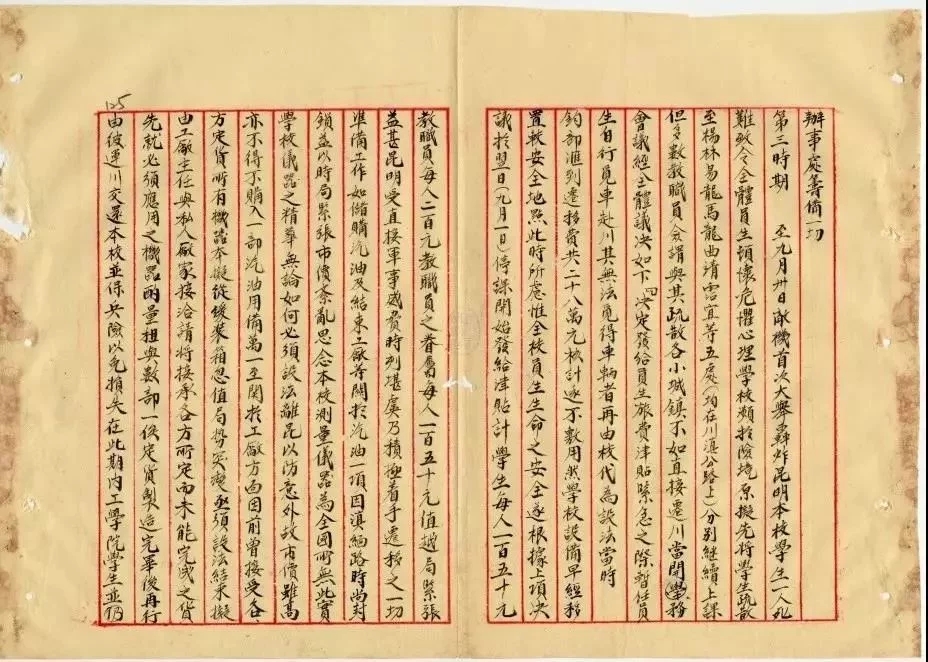 辦事處籌備一切
第三時期　至九月卅日敵機首次大舉轟炸昆明本校學生一人死
難致令全體員生頓懷危懼心理學校瀕於險境原擬先將學生疏散
至楊林易龍馬龍曲靖霑宜等五處（均在川滇公路上）分別繼續上課
但多數教職員僉謂與其疏散各小城鎮不如直接遷川當開學務
會議經全體議決如下「決定發給員生旅費津貼緊急之際暫任員
生自行覓車赴川其無法覓得車輛者再由校代為設法當時
鈞部滙到遷移費共二十八萬元核計遂不敷用然學校設備早經移
置較安全地點此時所慮惟全校員生生命之安全遂根據上項決
議於翌日（九月一日）停課開始發給津貼計學生每人一百五十元
教職員每人二百元教職員之眷屬每人一百五十元值趙局緊張
益甚昆明受直接軍事威脅時列堪虞乃積極着手遷移之一切
準備工作如儲購汽油及結束工廠等關於汽油一項因滇緬路時尚封
鎖益以時局緊張市價紊亂思念本校測量儀器為全國所無此實
學校儀器之精華無論如何必須設法離昆以防意外故市價雖高
亦不得不購入一部汽油用備萬一至關於工廠方面因前曾接受各
方定貨所有機器本擬從緩裝箱忽值局勢突變亟須設法結束擬
由工廠主任與私人廠家接洽請將接承各方所定而未能完成之貨
先就必須應用之機器酌量租與數部一俟定貨製造完畢後再行
由彼運川交還本校並保兵險以免損失在此期內工學院學生並仍
125